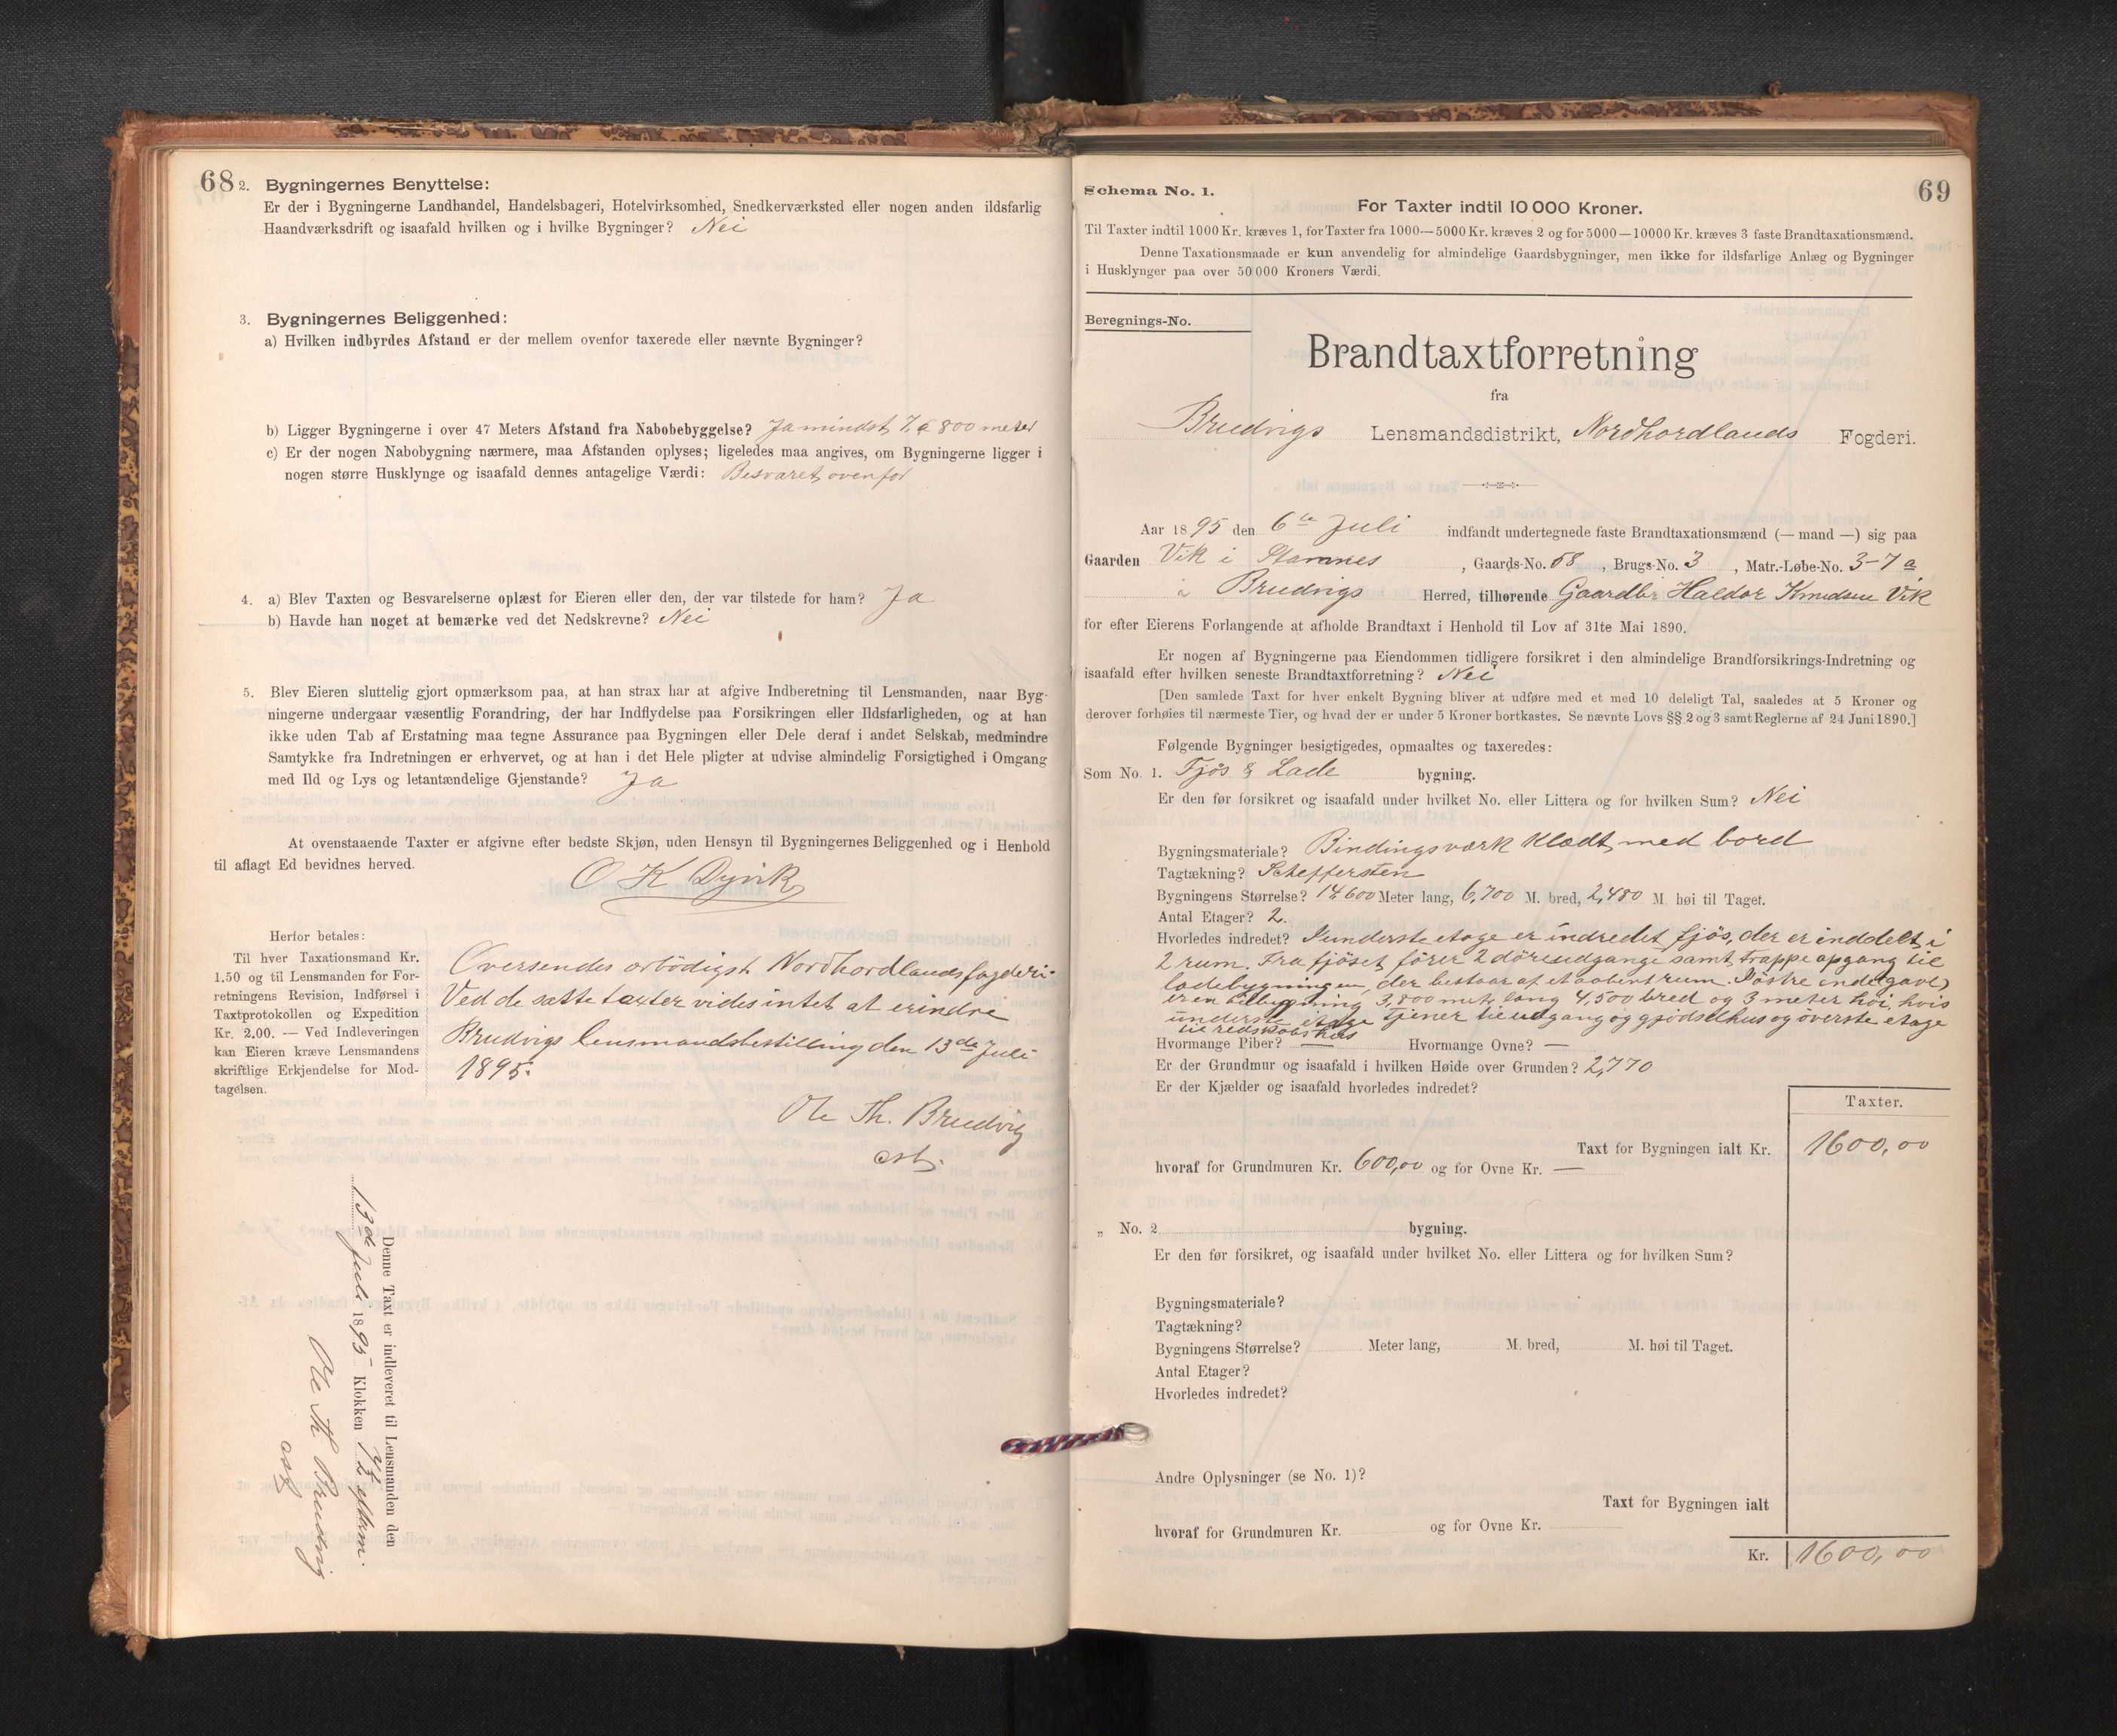 68
2. Bygningernes Benyttelse:
Er der i Bygningerne Landhandel, Handelsbageri, Hotelvirksomhed, Snedkerværksted eller nogen anden ildsfarlig
Haandværksdrift og isaafald hvilken og i hvilke Bygninger? Nei
3. Bygningernes Beliggenhed:
a) Hvilken indbyrdes Afstand er der mellem ovenfor taxerede eller nævnte Bygninger?
b) Ligger Bygningerne i over 47 Meters Afstand fra Nabobebyggelse? Ja mindst 7 a 800 meter
c) Er der nogen Nabobygning nærmere, maa Afstanden oplyses; ligeledes maa angives, om Bygningerne ligger i
nogen større Husklynge og isaafald dennes antagelige Værdi: Besvaret ovenfor
4. a) Blev Taxten og Besvarelserne oplæst for Eieren eller den, der var tilstede for ham? Ja
b) Havde han noget at bemærke ved det Nedskrevne? Nei
5. Blev Eieren sluttelig gjort opmærksom paa, at han strax har at afgive Indberetning til Lensmanden, naar Byg-
ningerne undergaar væsentlig Forandring, der har Indflydelse paa Forsikringen eller Ildsfarligheden, og at han
ikke uden Tab af Erstatning maa tegne Assurance paa Bygningen eller Dele deraf i andet Selskab, medmindre
Samtykke fra Indretningen er erhvervet, og at han i det Hele pligter at udvise almindelig Forsigtighed i Omgang
med Ild og Lys og letantændelige Gjenstande? Ja
At ovenstaaende Taxter er afgivne efter bedste Skjøn, uden Hensyn til Bygningernes Beliggenhed og i Henhold
til aflagt Ed bevidnes herved.
O K Dyvik
Herfor betales:
Til hver Taxationsmand Kr.
1,50 og til Lensmanden for For-
retningens Revision, Indførsel i
Taxtprotokollen og Expedition
Kr. 2.00. — Ved Indleveringen
kan Eieren kræve Lensmandens
skriftlige Erkjendelse for Mod-
tagelsen.
Oversendes ærbödigst Nordhordlands fogderi.
Ved de satte taxter vides intet at erindre
Brudvigs lensmandsbestilling den 13de Juli
1895.
Ole Th. Brudvig
Denne Taxt er indleveret til Lensmanden den
13de Juli 1895 Klokken 12 efterm.
Ole Th Brudvig
69
Schema No. 1.
For Taxter indtil 10 000 Kroner.
Til Taxter indtil 1000 Kr. kræves 1, for Taxter fra 1000—5000 Kr. kræves 2 og for 5000—10000 Kr. kræves 3 faste Brandtaxationsmænd.
Denne Taxationsmaade er kun anvendelig for almindelige Gaardsbygninger, men ikke for ildsfarlige Anlæg og Bygninger
i Husklynger paa over 50 000 Kroners Værdi.
Beregnings-No.
Brandtaxtforretning
fra
Brudvigs Lensmandsdistrikt, Nordhordlands Fogderi.
Aar 1895 den 6te Juli indfandt undertegnede faste Brandtaxationsmænd (— mand —) sig paa
Gaarden Vik i Stamnes, Gaards-No. 68, Brugs-No. 3, Matr.-Løbe-No. 3-7 a
i Brudvigs Herred, tilhørende Gaardbr Haldor Knudsen Vik
for efter Eierens Forlangende at afholde Brandtaxt i Henhold til Lov af 31te Mai 1890.
Er nogen af Bygningerne paa Eiendommen tidligere forsikret i den almindelige Brandforsikrings-Indretning og
isaafald efter hvilken seneste Brandtaxtforretning? Nei
[Den samlede Taxt for hver enkelt Bygning bliver at udføre med et med 10 deleligt Tal, saaledes at 5 Kroner og
derover forhøies til nærmeste Tier, og hvad der er under 5 Kroner bortkastes. Se nævnte Lovs §§ 2 og 3 samt Reglerne af 24 Juni 1890.]
Følgende Bygninger besigtigedes, opmaaltes og taxeredes:
Som No. 1. Fjös & Lade bygning.
Er den før forsikret og isaafald under hvilket No. eller Littera og for hvilken Sum? Nei
Bygningsmateriale? Bindingsværk klædt med bord
Tagtækning? Skeffersten
Bygningens Størrelse? 14,600 Meter lang, 6,700 M. bred, 2,480 M. høi til Taget.
Antal Etager? 2.
Hvorledes indredet? I underste etage er indredet fjös, der er inddelt i
2 rum. Fra fjöset förer 2 döreudgange samt trappeopgang til
ladebygningen, der bestaar af et aabent rum. I östre endegavl
er en tilbygning 3,800 metr lang 4,500 bred og 3 meter höi, hvis
underste etage tjener til udgang og gjödselhus og överste etage
til redskabshus
Hvormange Piber? — Hvormange Ovne? —
Er der Grundmur og isaafald i hvilken Høide over Grunden? 2,770
Er der Kjælder og isaafald hvorledes indredet?
Taxter.
Taxt for Bygningen ialt Kr. 1600,00
hvoraf for Grundmuren Kr. 600,00 og for Ovne Kr. —
„ No. 2 bygning.
Er den før forsikret, og isaafald under hvilket No. eller Littera og for hvilken Sum?
Bygningsmateriale?
Tagtækning?
Bygningens Størrelse? Meter lang, M. bred, M. høi til Taget.
Antal Etager?
Hvorledes indredet?
Andre Oplysninger (se No. 1)?
Taxt for Bygningen ialt
hvoraf for Grundmuren Kr. og for Ovne Kr.
Kr. 1600,00